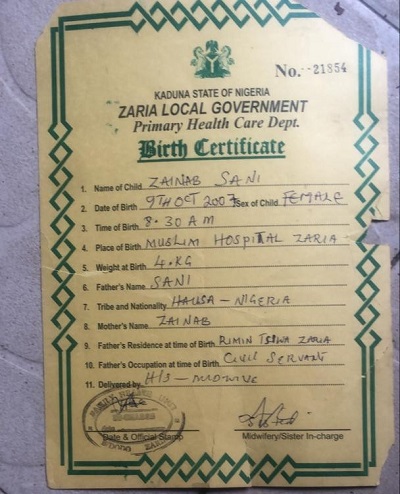 No. 21854
KADUNA STATE OF NIGERIA
ZARIA LOCAL GOVERNMENT
Primary Health Care Dept.
Birth Certificate
1. Name of Child ZAINAB SANI
2. Date of Birth 9TH OCT 2007 Sex of Child FEMALE
3. Time of Birth 8.30 AM
4. Place of Birth MUSLIM HOSPITAL ZARIA
5. Weight at Birth 4.KG
6. Father's Name SANI
7. Tribe and Nationality HAUSA - NIGERIA
8. Mother's Name ZAINAB
9. Father's Residence at time of Birth RIMIN TSIWA ZARIA
10. Father's Occupation at time of Birth CIVIL SERVANT
11. Delivered by H/S - MIDWIVE
Date & Official Stamp
Midwifery/Sister In-charge